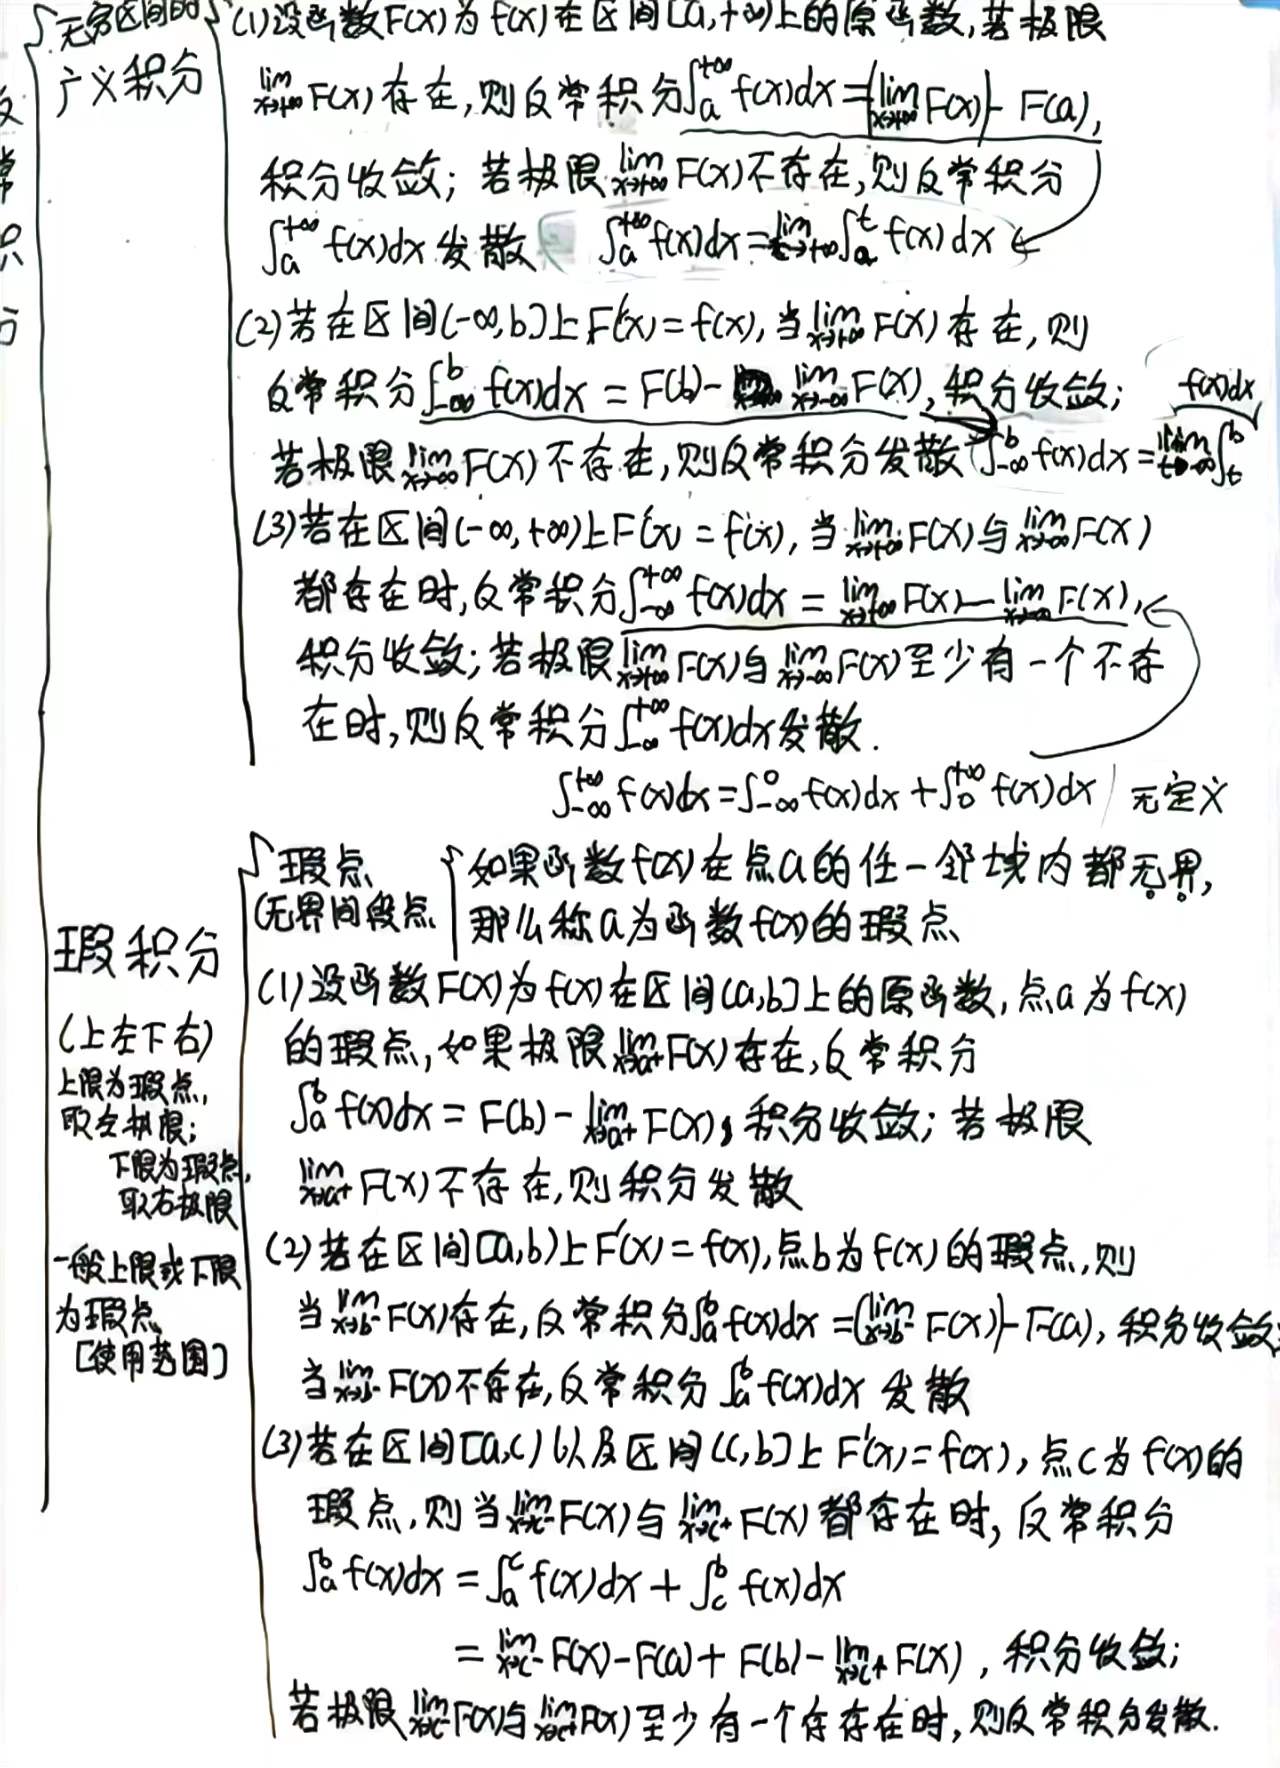 反常积分
无穷区间的
广义积分
(1)设函数F(x)为f(x)在区间[a,+∞)上的原函数,若极限
lim x→+∞ F(x)存在,则反常积分∫_a^{+∞} f(x)dx=(lim x→+∞ F(x))-F(a),
积分收敛;若极限lim x→+∞ F(x)不存在,则反常积分
∫_a^{+∞} f(x)dx发散 ∫_a^{+∞} f(x)dx=lim t→+∞ ∫_a^t f(x)dx
(2)若在区间(-∞,b]上F'(x)=f(x),当lim x→+∞ F(x)存在,则
反常积分∫_{-∞}^b f(x)dx=F(b)-lim x→-∞ F(x),积分收敛;
若极限lim x→-∞ F(x)不存在,则反常积分发散 ∫_{-∞}^b f(x)dx=lim t→-∞ ∫_t^b f(x)dx
(3)若在区间(-∞,+∞)上F'(x)=f(x),当lim x→+∞ F(x)与lim x→-∞ F(x)
都存在时,反常积分∫_{-∞}^{+∞} f(x)dx=lim x→+∞ F(x)-lim x→-∞ F(x),
积分收敛;若极限lim x→+∞ F(x)与lim x→-∞ F(x)至少有一个不存
在时,则反常积分∫_{-∞}^{+∞} f(x)dx发散.
∫_{-∞}^{+∞} f(x)dx=∫_{-∞}^0 f(x)dx+∫_0^{+∞} f(x)dx 无定义
瑕积分
(上左下右)
上限为瑕点,
取左极限;
下限为瑕点,
取右极限
一般上限或下限
为瑕点
[使用范围]
瑕点
(无界间段点
如果函数f(x)在点a的任一邻域内都无界,
那么称a为函数f(x)的瑕点
(1)设函数F(x)为f(x)在区间(a,b]上的原函数,点a为f(x)
的瑕点,如果极限lim x→a+ F(x)存在,反常积分
∫_a^b f(x)dx=F(b)-lim x→a+ F(x),积分收敛;若极限
lim x→a+ F(x)不存在,则积分发散
(2)若在区间[a,b)上F'(x)=f(x),点b为f(x)的瑕点,则
当lim x→b- F(x)存在,反常积分∫_a^b f(x)dx=(lim x→b- F(x))-F(a),积分收敛;
当lim x→b- F(x)不存在,反常积分∫_a^b f(x)dx发散
(3)若在区间[a,c)以及区间(c,b]上F'(x)=f(x),点c为f(x)的
瑕点,则当lim x→c- F(x)与lim x→c+ F(x)都存在时,反常积分
∫_a^b f(x)dx=∫_a^c f(x)dx+∫_c^b f(x)dx
=lim x→c- F(x)-F(a)+F(b)-lim x→c+ F(x),积分收敛;
若极限lim x→c- F(x)与lim x→c+ F(x)至少有一个存存在时,则反常积分发散.